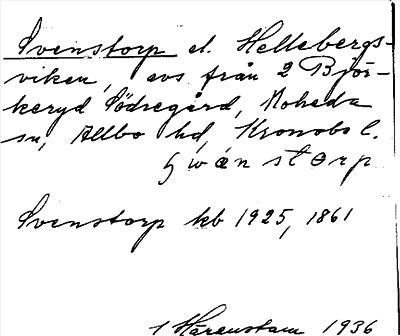 Svenstorp el. Hellebergs-
viken, avs från 2 Björ-
keryd Södregård, Moheda
sn, Allbo hd, Kronobs l.
Swänstorp
Svenstorp kb 1925, 1861
1 Härenstam 1936